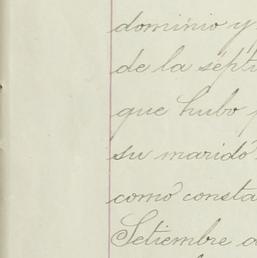 dominio y
de la sépti
que hubo
su marido
como consta
Setiembre d